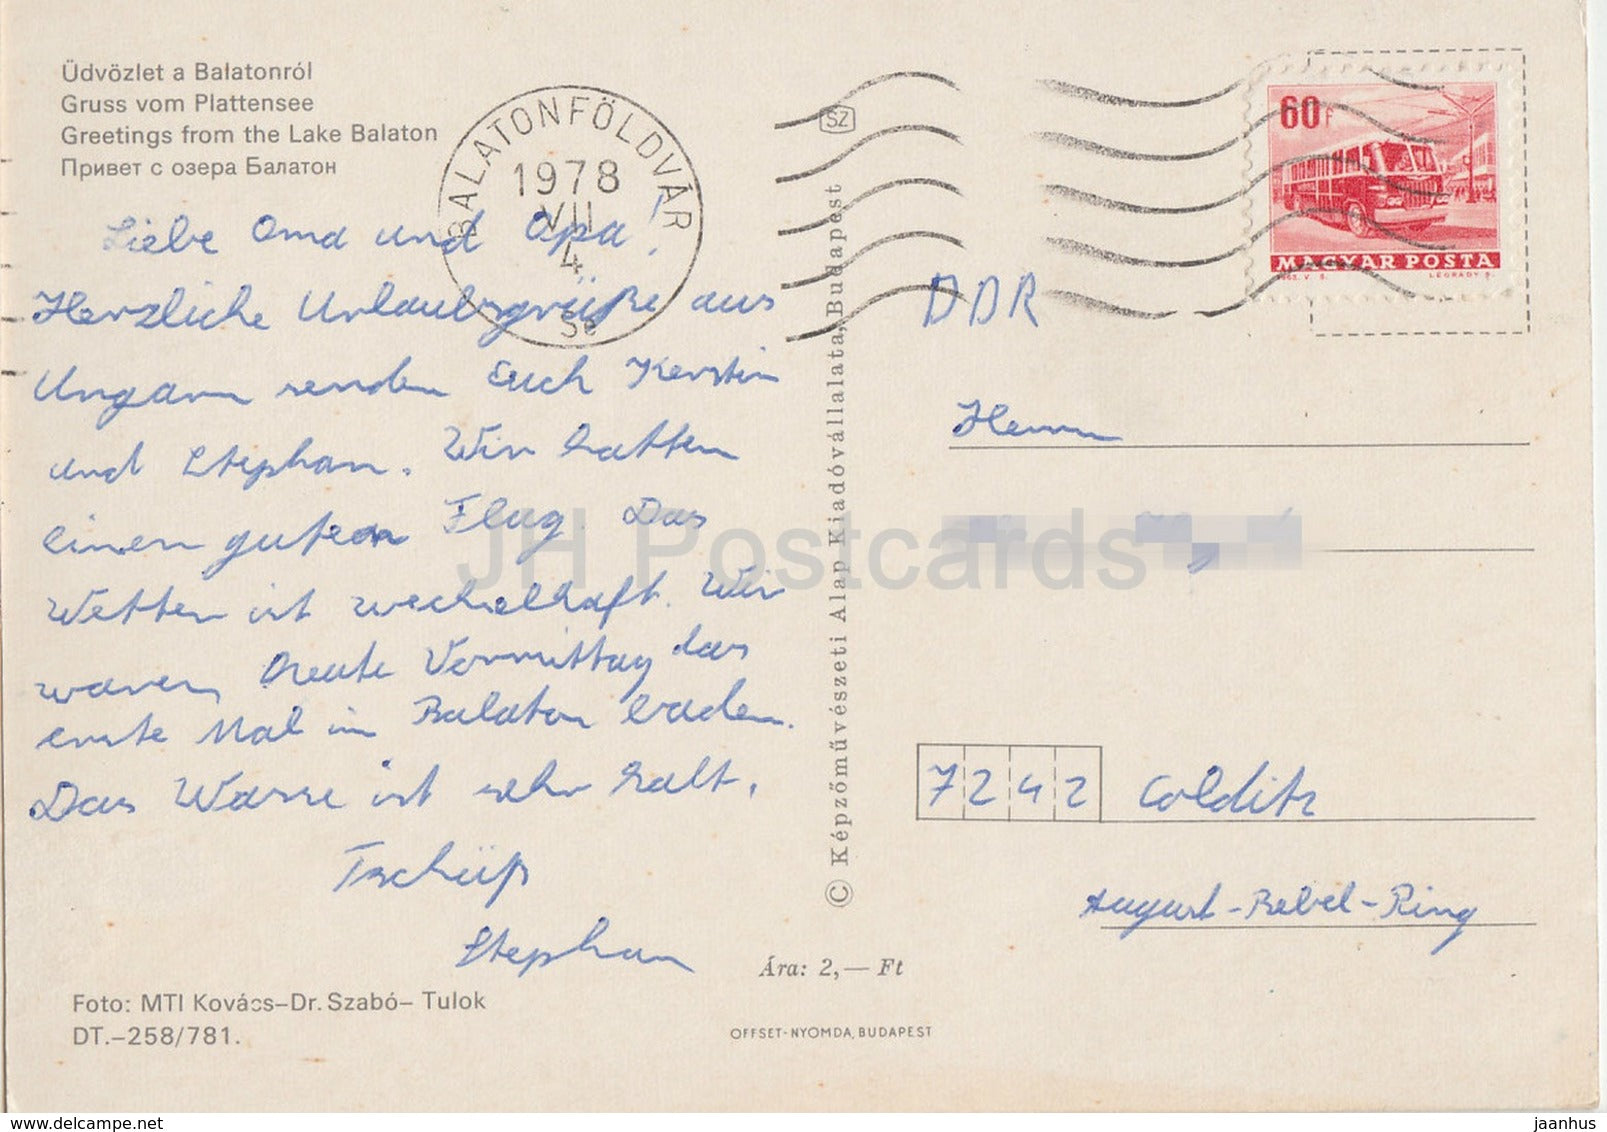 Üdvözlet a Balatonról
Gruss vom Plattensee
Greetings from the Lake Balaton
Привет с озера Балатон
BALATONFÖLDVÁR
1978
VII
4
Se
SZ
60f
MAGYAR POSTA
LÉGRÁDY S.
Liebe Oma und Opa!
Herzliche Urlaubsgrüße aus
Ungarn senden Euch Kerstin
und Stephan. Wir hatten
einen guten Flug. Das
Wetter ist wechselhaft. Wir
waren heute Vormittag das
erste Mal im Balaton baden.
Das Wasse ist sehr kalt.
Tschüß
Stephan
DDR
Herrn
7242 Colditz
August-Bebel-Ring
© Képzőművészeti Alap Kiadóvállalata, Budapest
Ára: 2,— Ft
Foto: MTI Kovács–Dr. Szabó– Tulok
DT.–258/781.
OFFSET-NYOMDA, BUDAPEST
JH Postcards
hippostcard.com
jaanhus